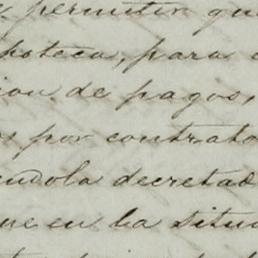 permitir que
poteca, para
ion de pagos,
os por contrato
endola decretad
que en la situa